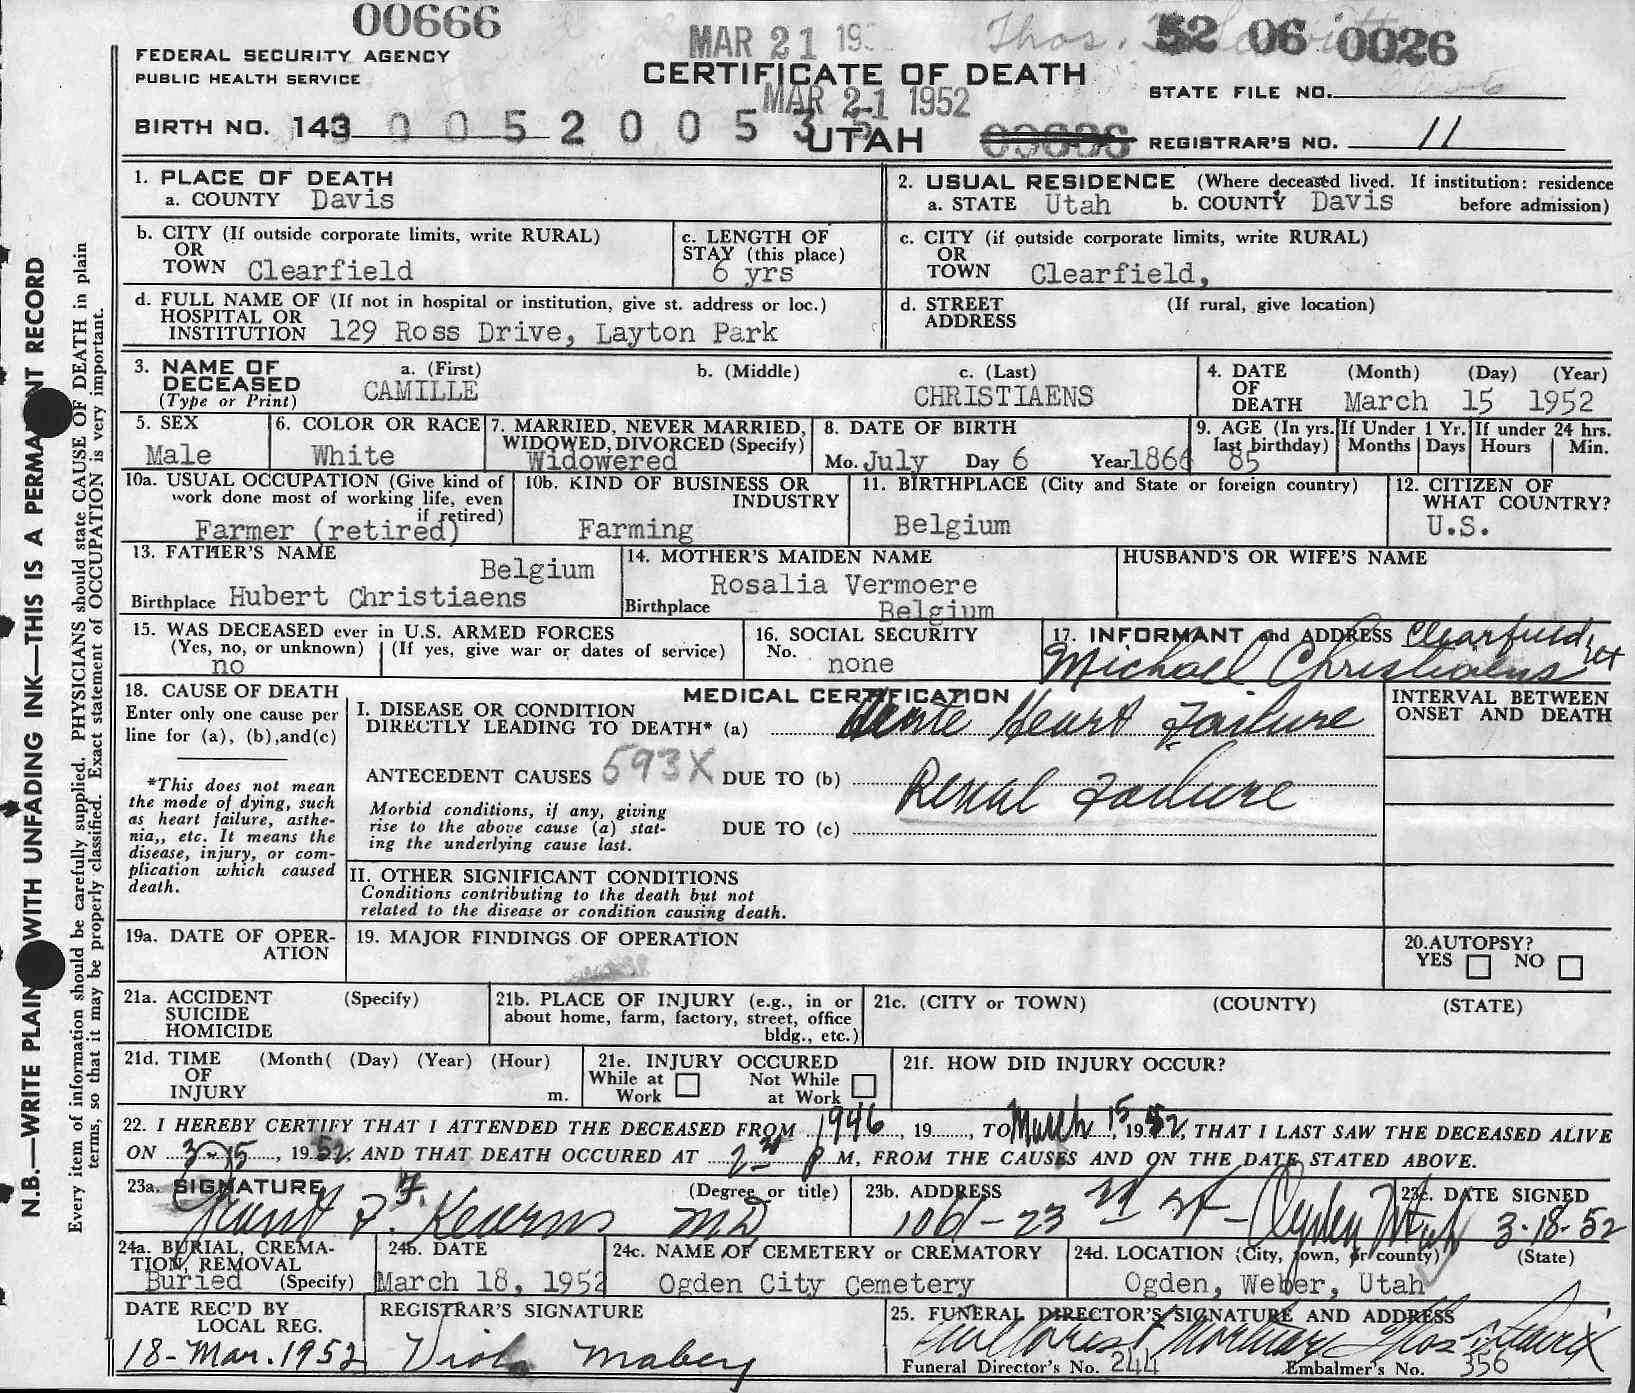 00666
MAR 21 195
Thos.
52 06 0026
FEDERAL SECURITY AGENCY
PUBLIC HEALTH SERVICE
CERTIFICATE OF DEATH
MAR 21 1952
STATE FILE NO.
BIRTH NO. 143 0 0 5 2 0 0 5 3
UTAH
REGISTRAR'S NO. 11
1. PLACE OF DEATH
a. COUNTY Davis
2. USUAL RESIDENCE (Where deceased lived. If institution: residence before admission)
a. STATE Utah b. COUNTY Davis
b. CITY (If outside corporate limits, write RURAL)
OR
TOWN Clearfield
c. LENGTH OF
STAY (this place)
6 yrs
c. CITY (if outside corporate limits, write RURAL)
OR
TOWN Clearfield,
d. FULL NAME OF (If not in hospital or institution, give st. address or loc.)
HOSPITAL OR
INSTITUTION 129 Ross Drive, Layton Park
d. STREET (If rural, give location)
ADDRESS
3. NAME OF
DECEASED
(Type or Print)
a. (First) b. (Middle) c. (Last)
CAMILLE CHRISTIAENS
4. DATE (Month) (Day) (Year)
OF
DEATH March 15 1952
5. SEX
Male
6. COLOR OR RACE
White
7. MARRIED, NEVER MARRIED,
WIDOWED, DIVORCED (Specify)
Widowered
8. DATE OF BIRTH
Mo. July Day 6 Year 1866
9. AGE (In yrs. last birthday)
85
If Under 1 Yr.
Months Days
If under 24 hrs.
Hours Min.
10a. USUAL OCCUPATION (Give kind of
work done most of working life, even
if retired)
Farmer (retired)
10b. KIND OF BUSINESS OR
INDUSTRY
Farming
11. BIRTHPLACE (City and State or foreign country)
Belgium
12. CITIZEN OF
WHAT COUNTRY?
U.S.
13. FATHER'S NAME
Belgium
Birthplace Hubert Christiaens
14. MOTHER'S MAIDEN NAME
Rosalia Vermoere
Birthplace Belgium
HUSBAND'S OR WIFE'S NAME
15. WAS DECEASED ever in U.S. ARMED FORCES
(Yes, no, or unknown) (If yes, give war or dates of service)
no
16. SOCIAL SECURITY
No.
none
17. INFORMANT and ADDRESS Clearfield, Ut
Michael Christiaens
18. CAUSE OF DEATH
Enter only one cause per
line for (a), (b),and(c)
*This does not mean
the mode of dying, such
as heart failure, asthe-
nia,, etc. It means the
disease, injury, or com-
plication which caused
death.
MEDICAL CERTIFICATION
I. DISEASE OR CONDITION
DIRECTLY LEADING TO DEATH* (a) Acute Heart Failure
ANTECEDENT CAUSES 593X DUE TO (b) Renal Failure
Morbid conditions, if any, giving
rise to the above cause (a) stat-
ing the underlying cause last.
DUE TO (c)
INTERVAL BETWEEN
ONSET AND DEATH
II. OTHER SIGNIFICANT CONDITIONS
Conditions contributing to the death but not
related to the disease or condition causing death.
19a. DATE OF OPER-
ATION
19. MAJOR FINDINGS OF OPERATION
20. AUTOPSY?
YES NO
21a. ACCIDENT (Specify)
SUICIDE
HOMICIDE
21b. PLACE OF INJURY (e.g., in or
about home, farm, factory, street, office
bldg., etc.)
21c. (CITY or TOWN) (COUNTY) (STATE)
21d. TIME (Month( (Day) (Year) (Hour)
OF
INJURY m.
21e. INJURY OCCURED
While at Work Not While at Work
21f. HOW DID INJURY OCCUR?
22. I HEREBY CERTIFY THAT I ATTENDED THE DECEASED FROM 1946, 19......, TO March 15, 1952, THAT I LAST SAW THE DECEASED ALIVE
ON 3-15, 1952, AND THAT DEATH OCCURED AT 2 P M, FROM THE CAUSES AND ON THE DATE STATED ABOVE.
23a. SIGNATURE (Degree or title)
Grant F. Kearns MD
23b. ADDRESS
106-23rd St-Ogden Utah
23c. DATE SIGNED
3-18-52
24a. BURIAL, CREMA-
TION, REMOVAL
Buried (Specify)
24b. DATE
March 18, 1952
24c. NAME OF CEMETERY or CREMATORY
Ogden City Cemetery
24d. LOCATION (City, town, or county) (State)
Ogden, Weber, Utah
DATE REC'D BY
LOCAL REG.
18-Mar.1952
REGISTRAR'S SIGNATURE
Viola Mabey
25. FUNERAL DIRECTOR'S SIGNATURE AND ADDRESS
Mortuary Thos
Funeral Director's No. 244 Embalmer's No. 356
N.B.—WRITE PLAIN WITH UNFADING INK—THIS IS A PERMANENT RECORD
Every item of information should be carefully supplied. PHYSICIANS should state CAUSE OF DEATH in plain
terms, so that it may be properly classified. Exact statement of OCCUPATION is very important.